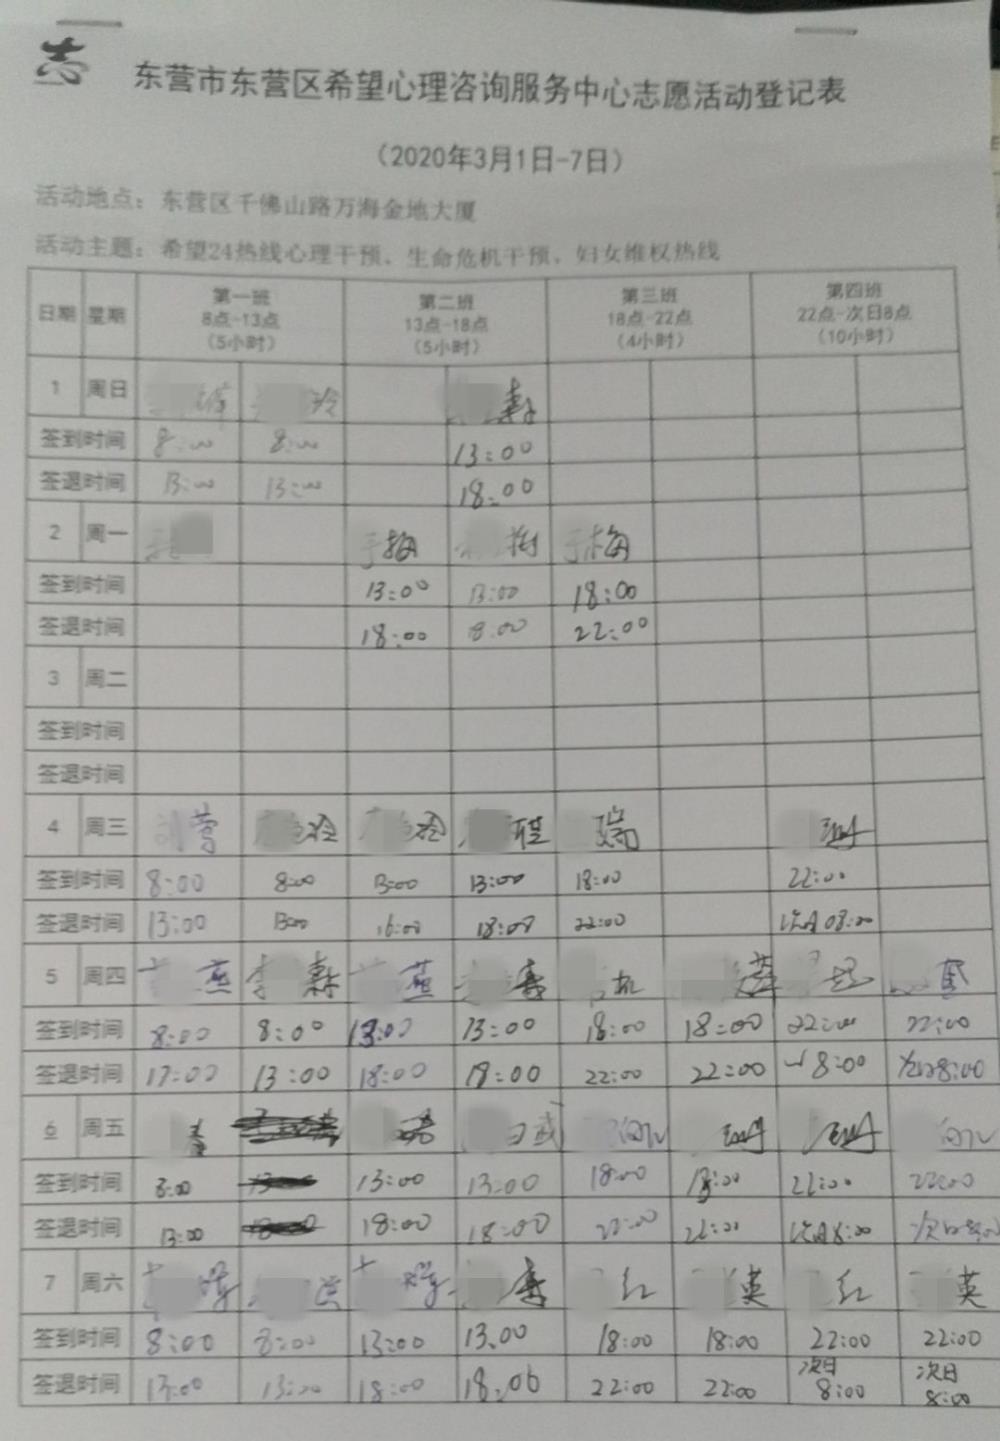 志
东营市东营区希望心理咨询服务中心志愿活动登记表
（2020年3月1日-7日）
活动地点：东营区千佛山路万海金地大厦
活动主题：希望24热线心理干预、生命危机干预、妇女维权热线
日期 星期 第一班 8点-13点 （5小时） 第二班 13点-18点 （5小时） 第三班 18点-22点 （4小时） 第四班 22点-次日8点 （10小时）
1 周日 玲 森
签到时间 8:00 8:00 13:00
签退时间 13:00 13:00 18:00
2 周一 于梅 于梅
签到时间 13:00 13:00 18:00
签退时间 18:00 18:00 22:00
3 周二
签到时间
签退时间
4 周三 莺 玲 玲 程 瑞
签到时间 8:00 8:00 13:00 13:00 18:00 22:00
签退时间 13:00 13:00 16:00 18:00 22:00 次日08:00
5 周四 燕 李 森 燕
签到时间 8:00 8:00 13:00 13:00 18:00 18:00 22:00 22:00
签退时间 17:00 13:00 18:00 18:00 22:00 22:00 8:00 次日8:00
6 周五
签到时间 8:00 13:00 13:00 18:00 18:00 22:00 22:00
签退时间 13:00 18:00 18:00 22:00 22:00 次日8:00 次日
7 周六 红 英 红 英
签到时间 8:00 8:00 13:00 13.00 18:00 18:00 22:00 22:00
签退时间 13:00 13:00 18:00 18.00 22:00 22:00 次日8:00 次日8:00